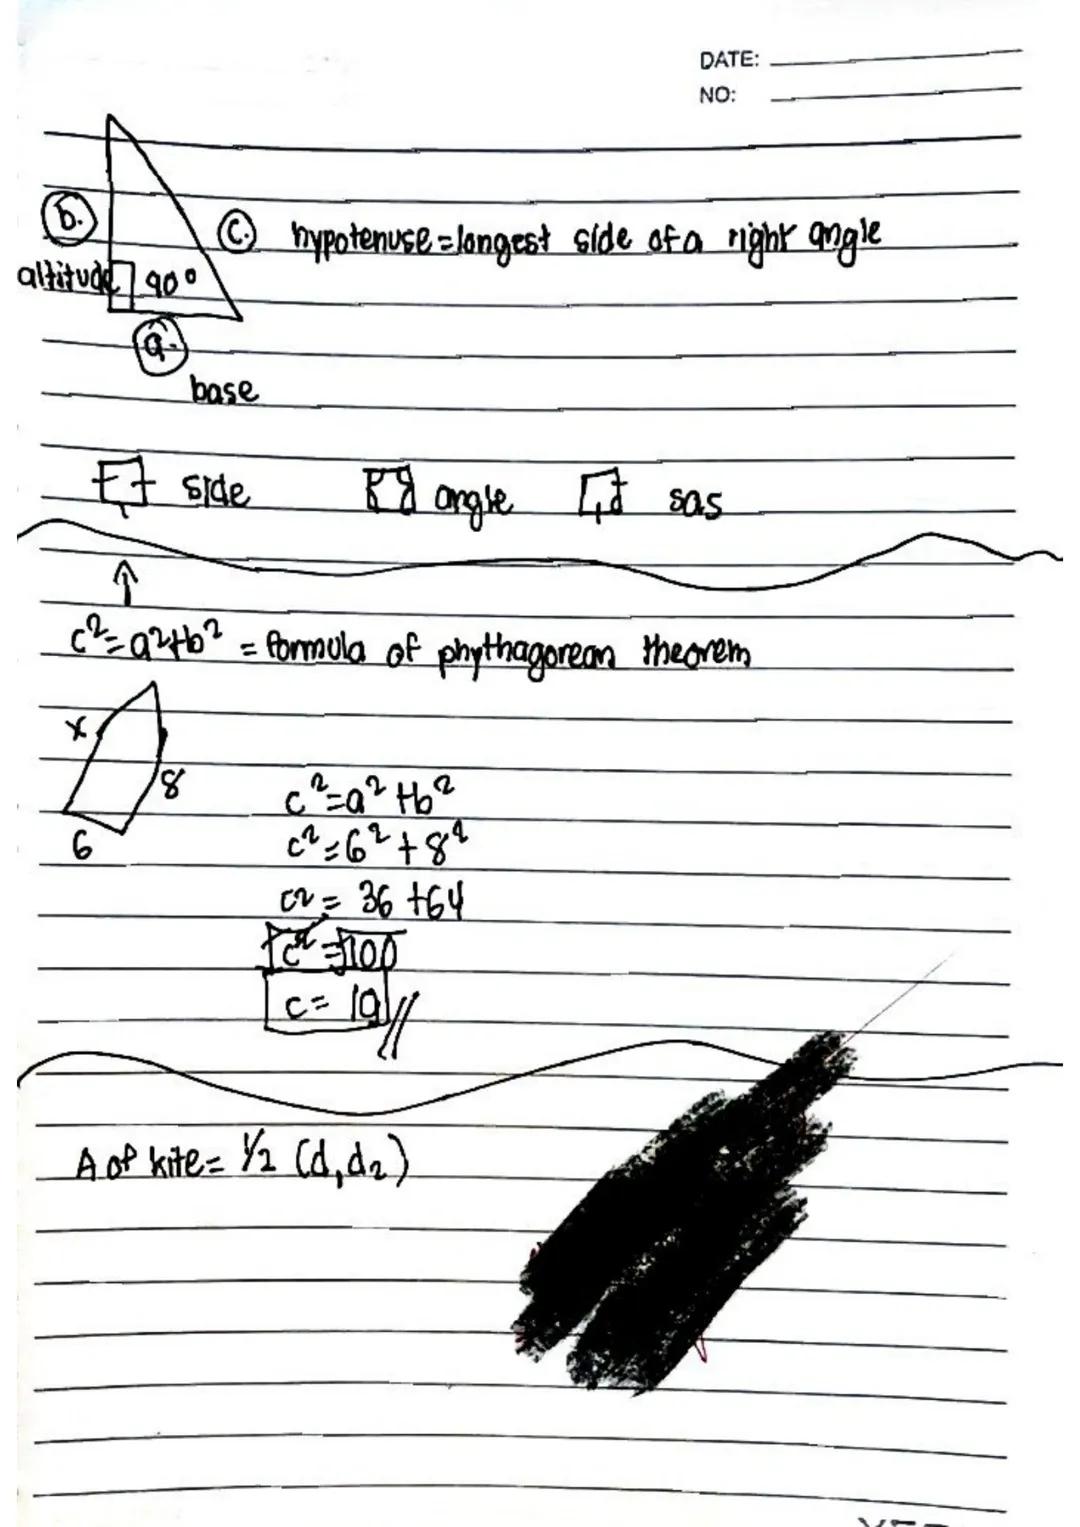 DATE:
NO:
b.
c. hypotenuse = longest side of a right angle
altitude 90°
a.
base
side angle sas
c²=a²+b² = formula of phythagorean theorem
x
8
6
c²=a²+b²
c²=6²+8²
c² = 36 +64
c² = 100
c = 10
A of kite = 1/2 (d₁d₂)